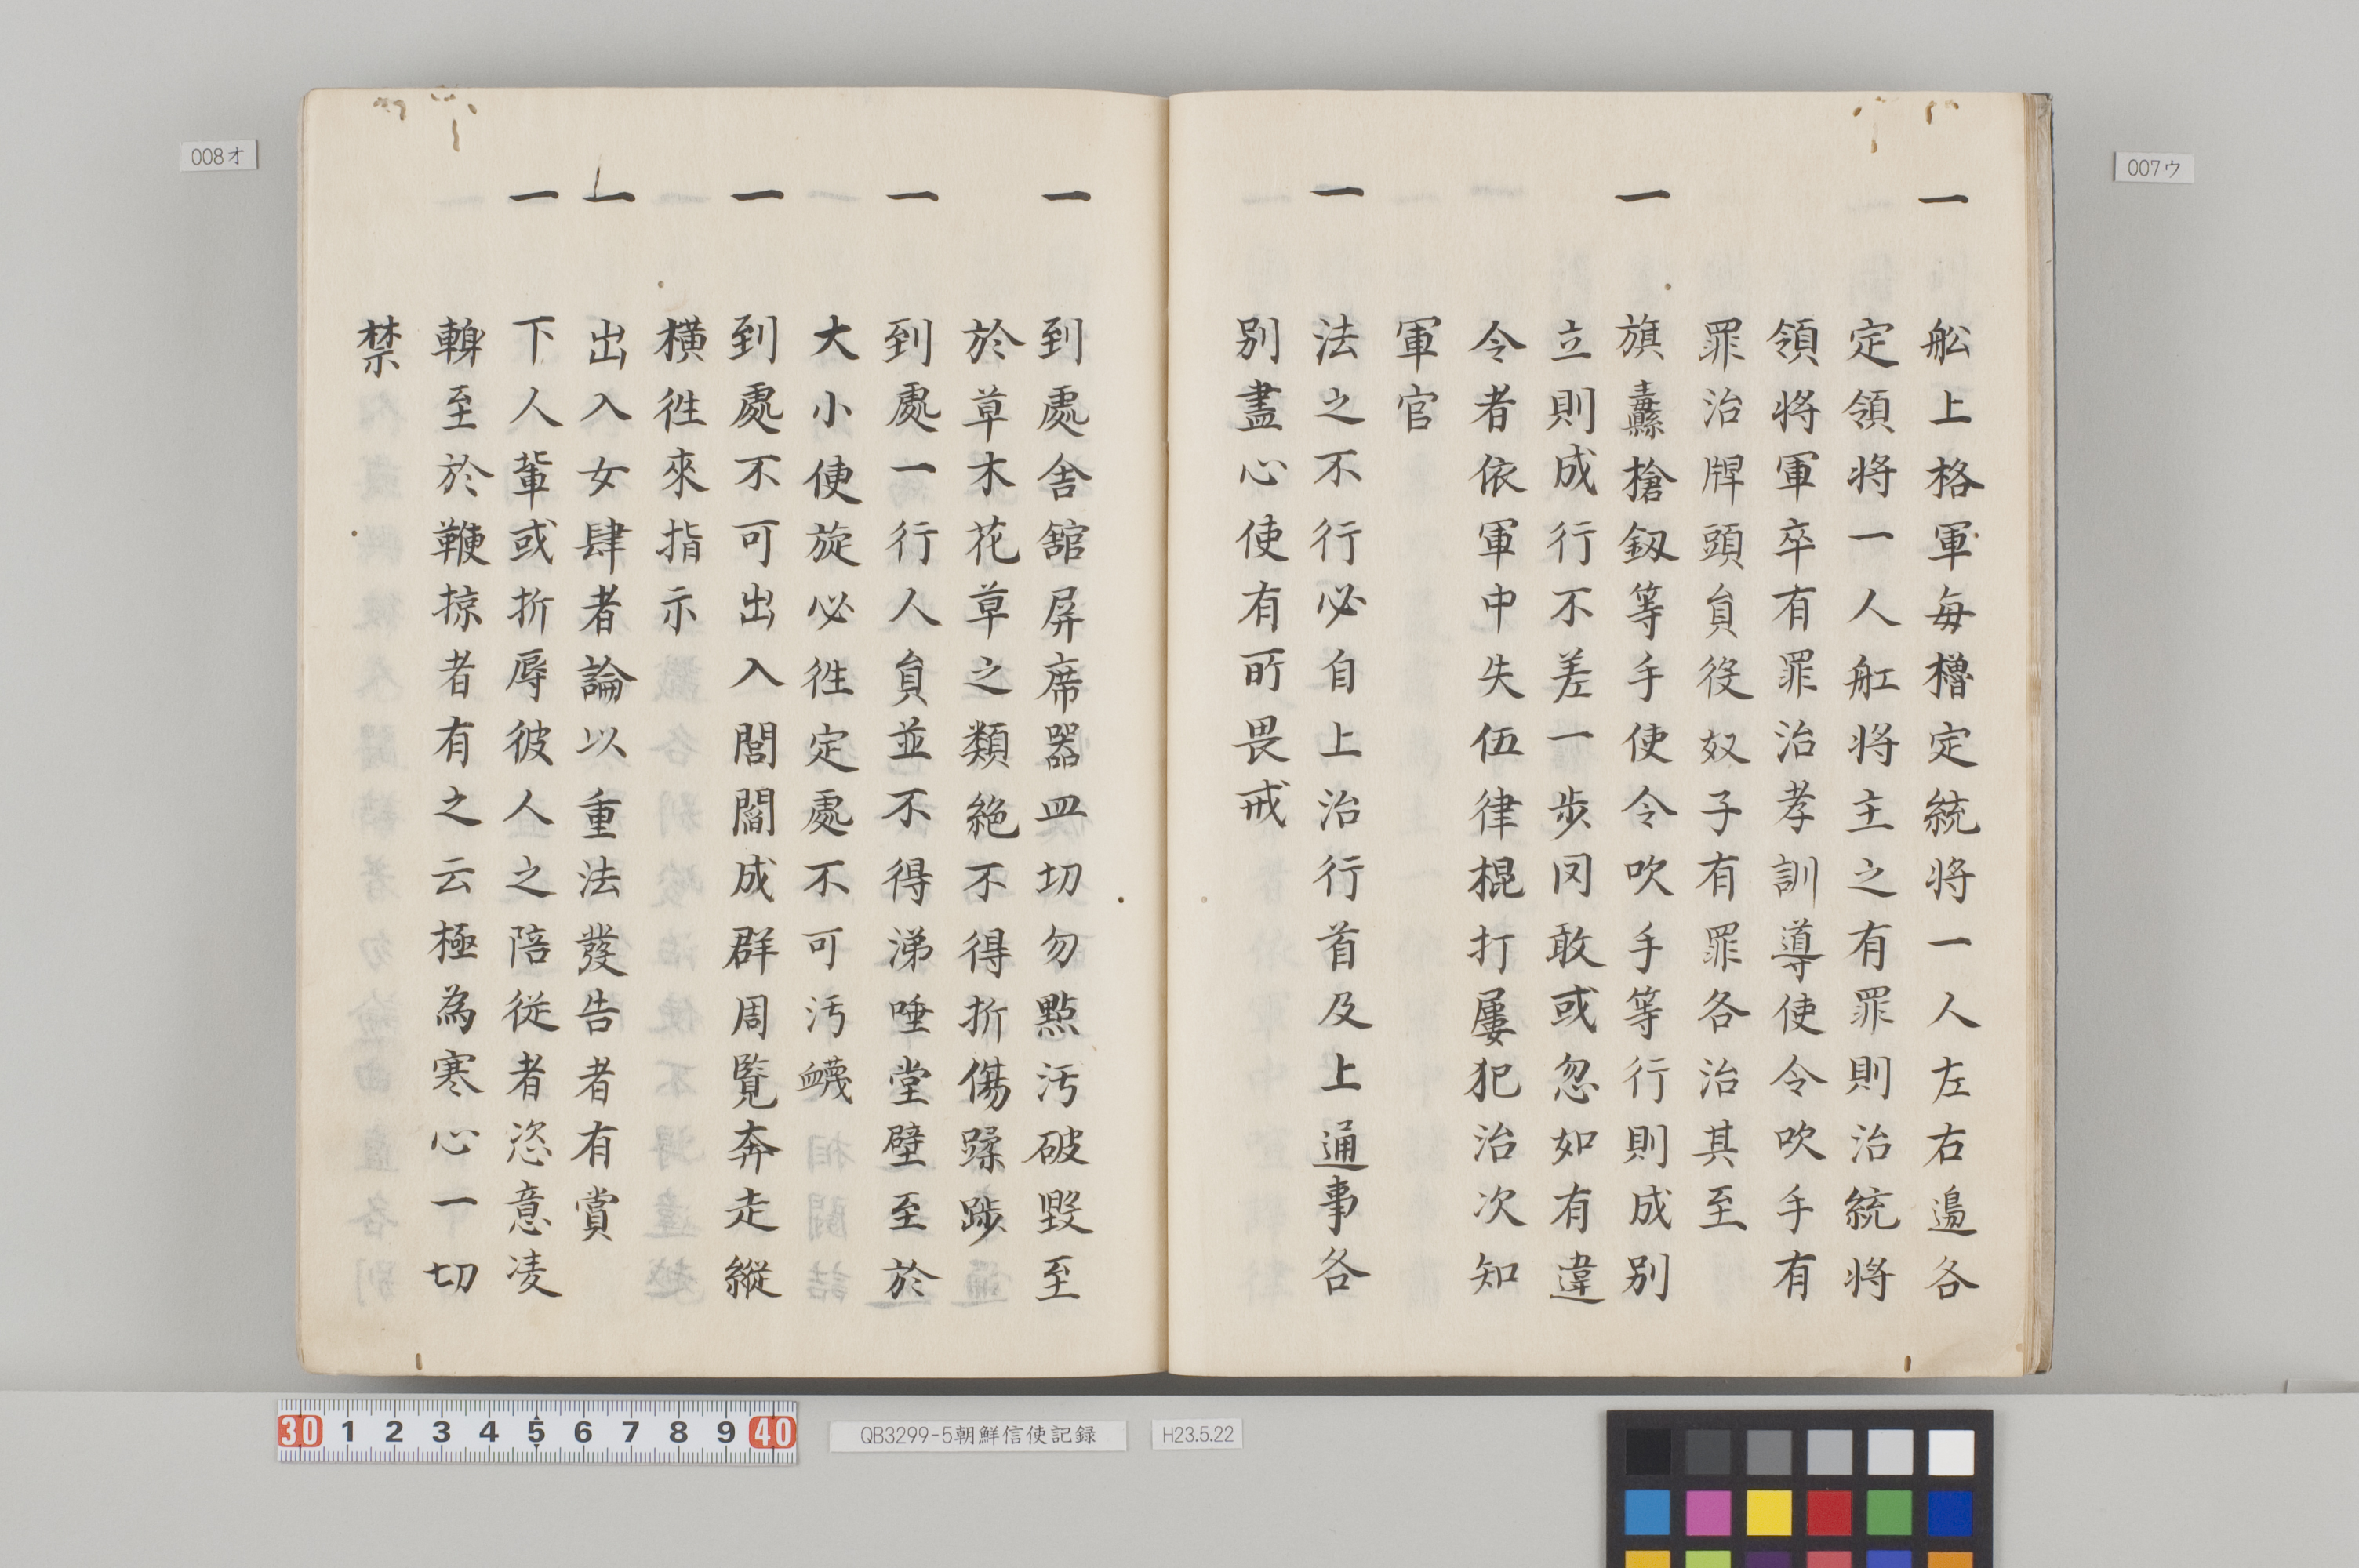 007ウ
一 舩上格軍每櫓定統将一人左右邉各
定領将一人舡将主之有罪則治統将
領将軍卒有罪治孝訓導使令吹手有
罪治牌頭負役奴子有罪各治其至
一 旗纛槍釼等手使令吹手等行則成別
立則成行不差一歩罔敢或忽如有違
令者依軍中失伍律棍打屢犯治次知
軍官
一 法之不行必自上治行首及上通事各
別盡心使有所畏戒
008オ
一 到處舎舘屏席器皿切勿點汚破毀至
於草木花草之類絶不得折傷蹂踄
一 到處一行人負並不得涕唾堂壁至於
大小使旋必徃定處不可汚衊
一 到處不可出入閭閻成群周覧奔走縦
横徃來指示
一 出入女肆者論以重法發告者有賞
一 下人輩或折辱彼人之陪従者恣意凌
轢至於鞭掠者有之云極為寒心一切
禁
30 1 2 3 4 5 6 7 8 9 40
QB3299-5朝鮮信使記録
H23.5.22